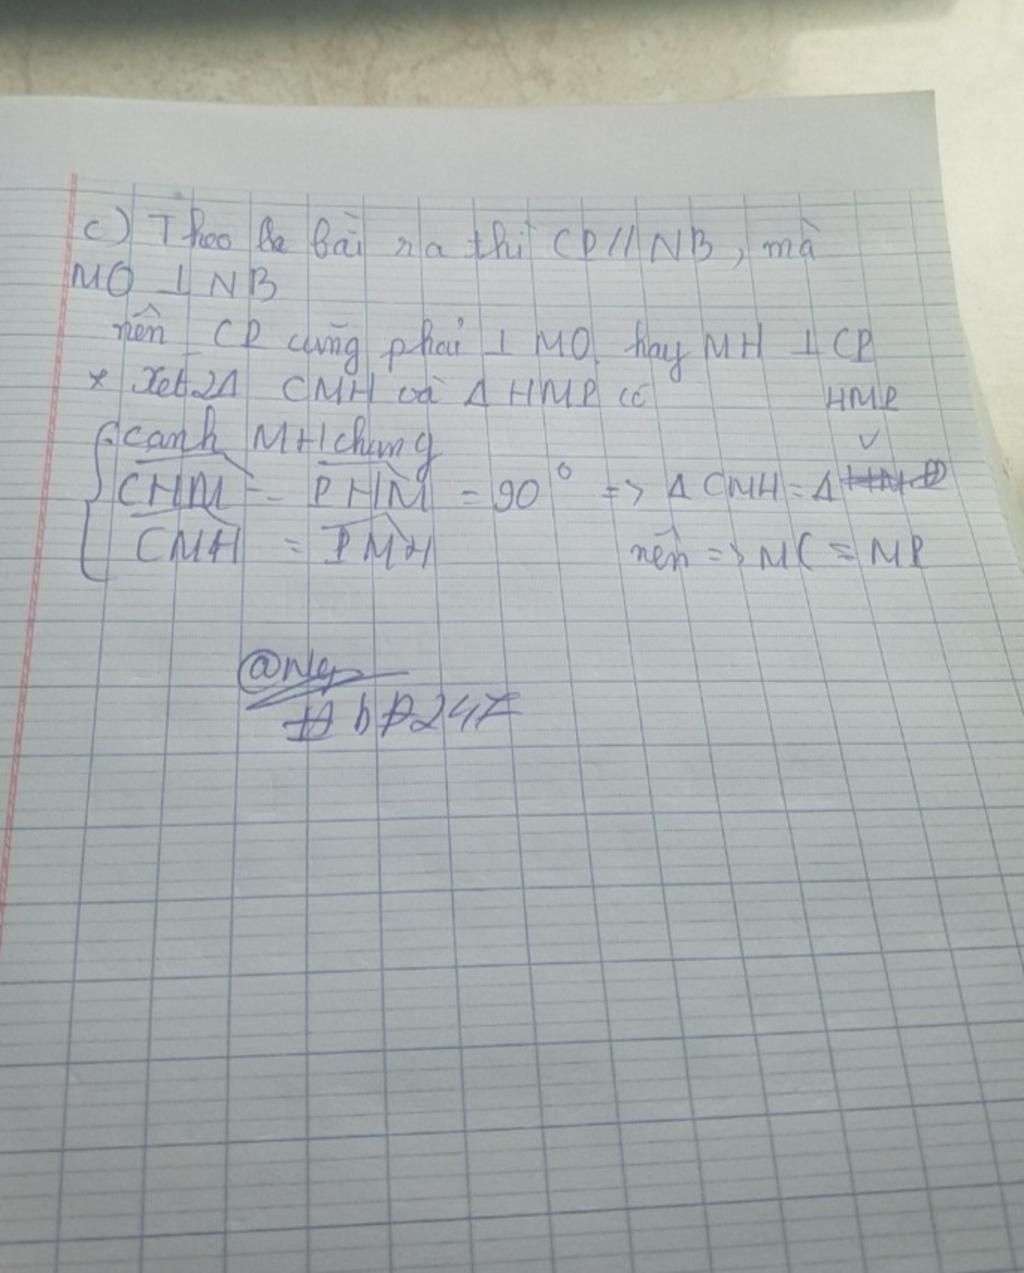 c) Theo đề bài ra thì CP // NB, mà
MO ⊥ NB
nên CP cũng phải ⊥ MO hay MH ⊥ CP
* Xét 2Δ CMH và Δ HMP có
HMP
cạnh MH chung
CHM = PHM = 90° => Δ CMH = Δ
CMH = PMH nên => MC = MP